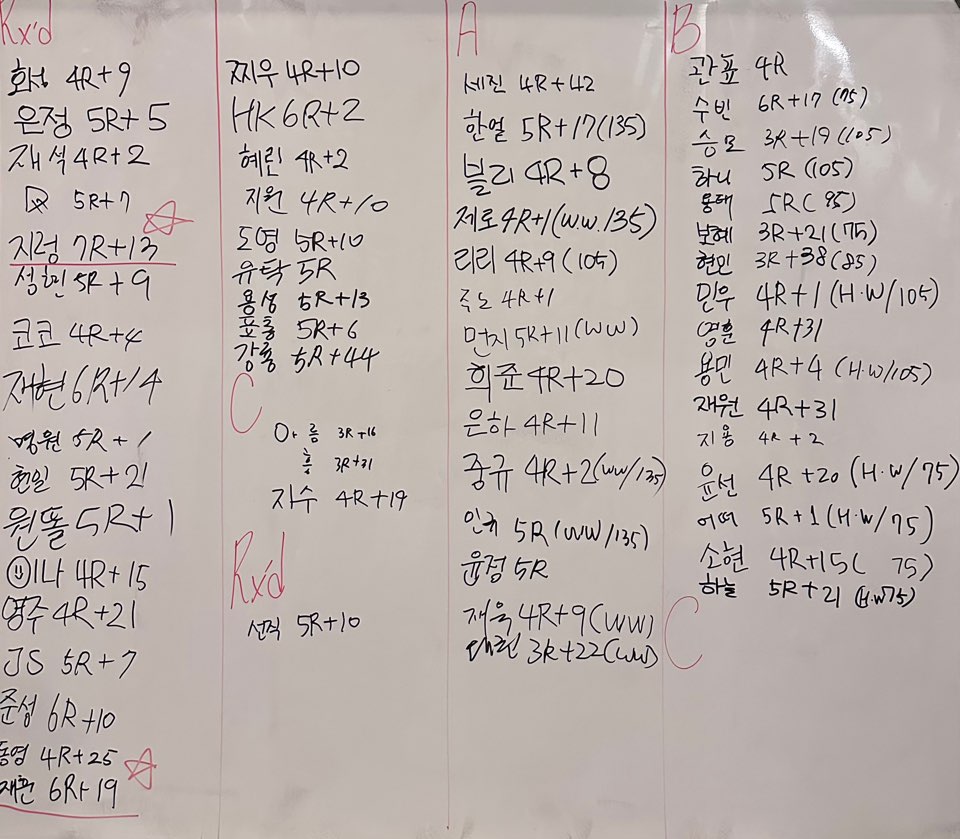 Rx'd
화성 4R+9
은정 5R+5
재석 4R+2
5R+7
지렁 7R+13
섬현 5R+9
코코 4R+4
재현 6R+14
병원 5R+1
현일 5R+21
원똘 5R+1
이나 4R+15
영주 4R+21
JS 5R+7
준성 6R+10
동영 4R+25
재환 6R+19
찌우 4R+10
HK 6R+2
혜린 4R+2
지원 4R+10
도영 5R+10
유탁 5R
용성 5R+13
표흥 5R+6
강룡 5R+44
C
아름 3R+16
흥 3R+21
지수 4R+19
Rx'd
선직 5R+10
A
세진 4R+42
한얼 5R+17(135)
블리 4R+8
제로 4R+1(W.W.135)
리리 4R+9(105)
죠노 4R+1
먼지 5R+11(WW)
희준 4R+20
은하 4R+11
중규 4R+2(WW/135)
인규 5R(WW/135)
윤정 5R
재욱 4R+9(WW)
3R+22(WW)
B
관표 4R
수빈 6R+17(75)
승모 3R+19(105)
하니 5R(105)
5R(95)
보혜 3R+21(75)
현민 3R+38(85)
민우 4R+1(H.W/105)
영훈 4R+31
용민 4R+4(H.W/105)
재원 4R+31
지용 4R+2
윤선 4R+20(H.W/75)
어떠 5R+1(H.W/75)
소현 4R+15( 75)
하늘 5R+21(H.W75)
C